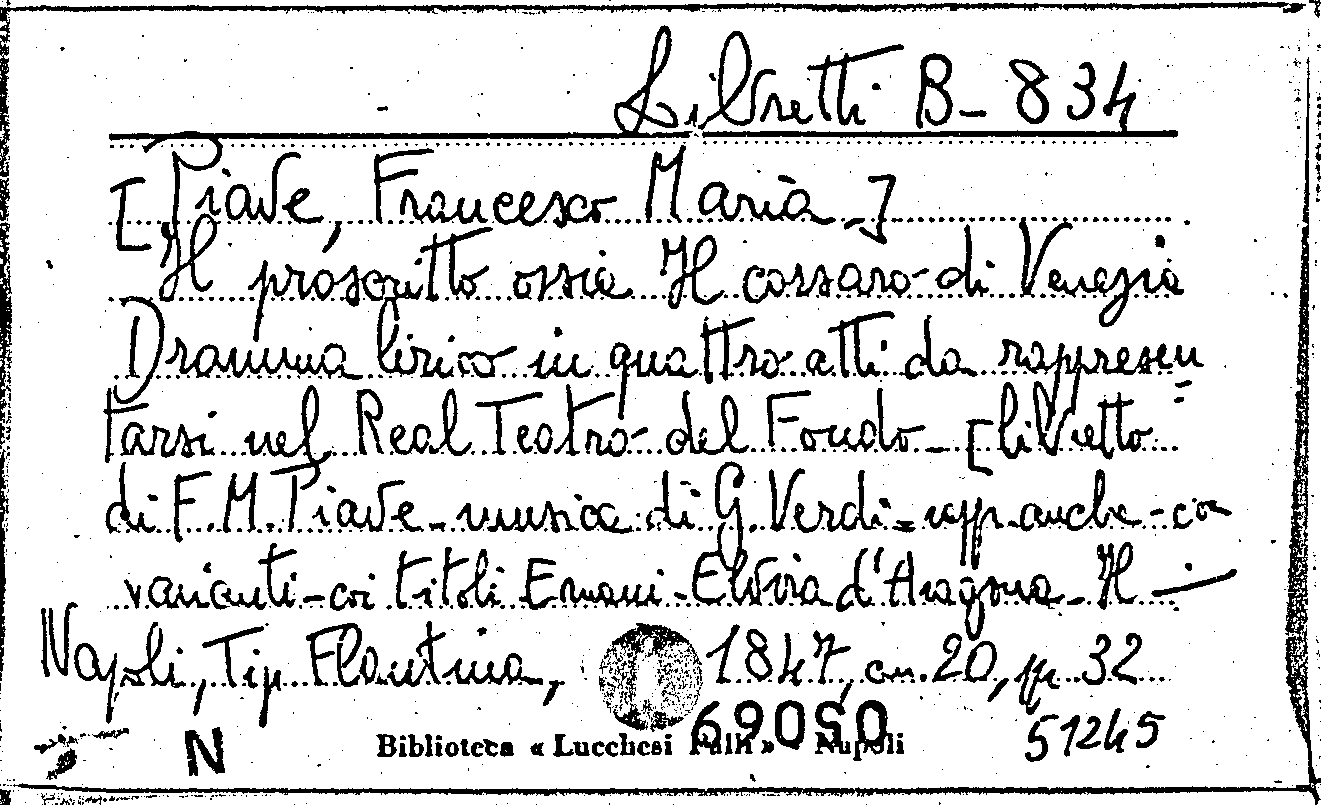 Libretti B- 834
[Piave, Francesco Maria.]
Il proscritto ossia Il corsaro di Venezia
Dramma lirico in quattro atti da rappresen=
tarsi nel Real Teatro del Fondo- [libretto
di F.M. Piave- musica di G. Verdi= rapp. anche- co
varianti- coi titoli Ernani- Elvira d'Aragona- Il —
Napoli, Tip. Flautina, 1847, cm. 20, pp. 32
69050 51245
N Biblioteca « Lucchesi Palli » - Napoli